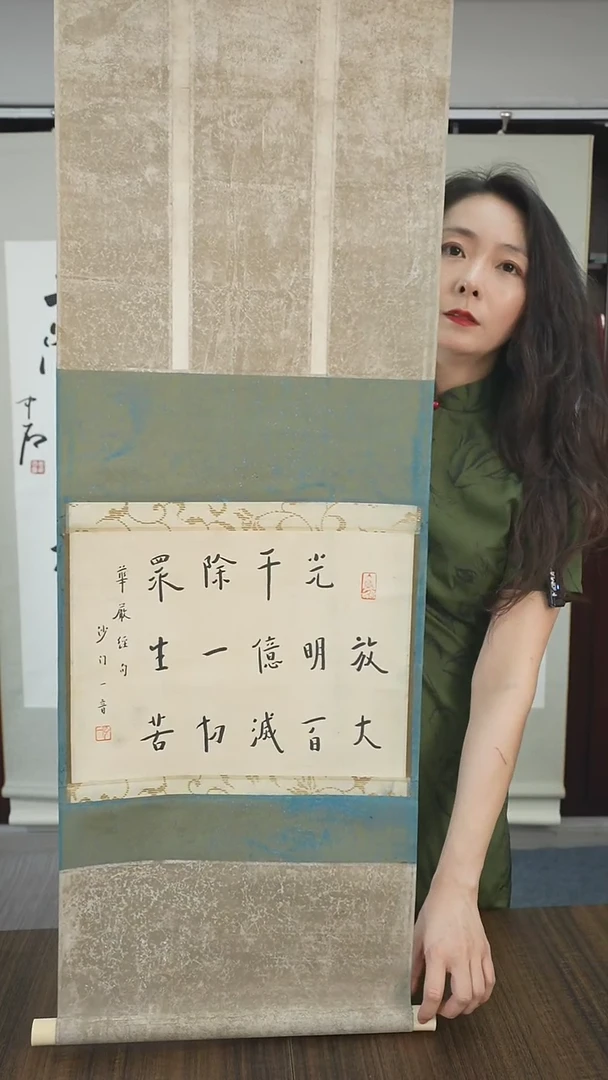 放大
光明百
千億滅
除一切
眾生苦
華嚴經句
沙門一音